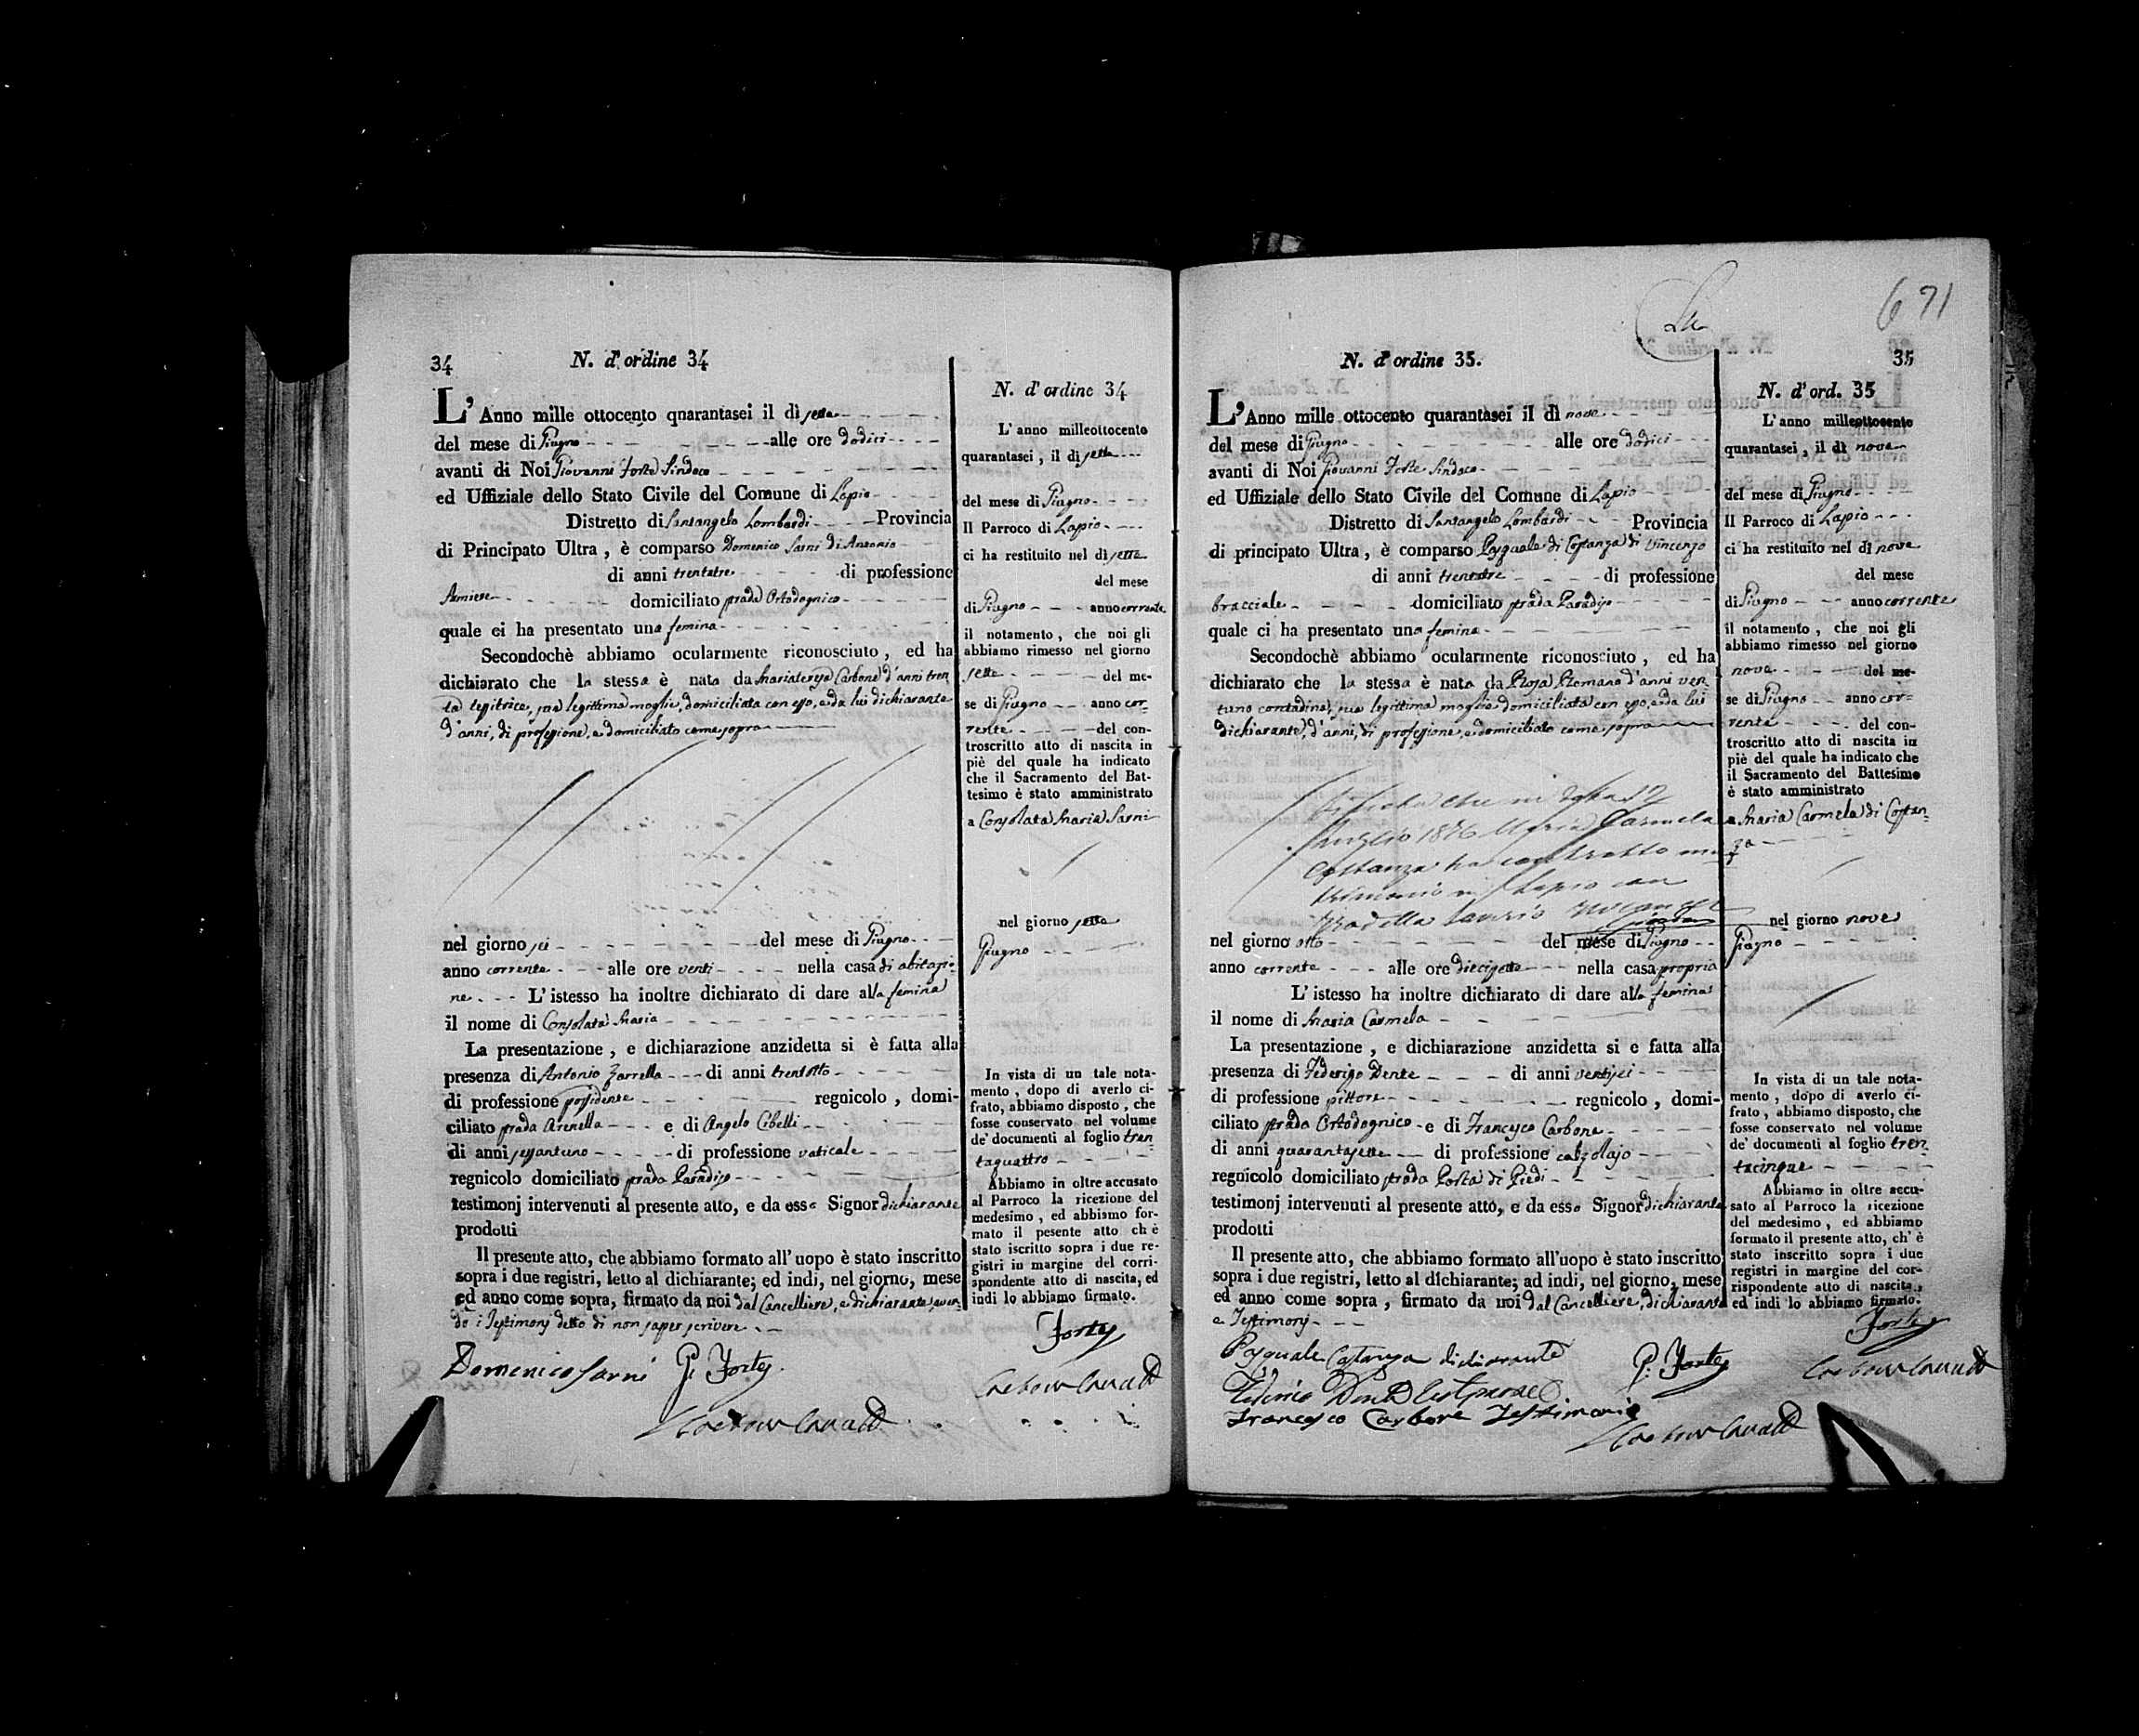 34
N. d'ordine 34
L'Anno mille ottocento qnarantasei il dì sette
del mese di Giugno alle ore dodici
avanti di Noi Giovanni Forte Sindaco
ed Uffiziale dello Stato Civile del Comune di Lapio
Distretto di Santangelo Lombardi Provincia
di Principato Ultra, è comparso Domenico Sarni di Antonio
di anni trentatre di professione
domiciliato strada Ortodognico
quale ci ha presentato una femina
Secondochè abbiamo ocularmente riconosciuto, ed ha
dichiarato che la stessa è nata da Mariateresa Carbone d'anni tren
ta tessitrice, sua legittima moglie, domiciliata con esso, e da lui dichiarante
d'anni, di professione, e domiciliato come sopra
nel giorno sei del mese di Giugno
anno corrente alle ore venti nella casa di abitazio-
ne. L'istesso ha inoltre dichiarato di dare alla femina
il nome di Consolata Maria
La presentazione, e dichiarazione anzidetta si è fatta alla
presenza di Antonio Zarrella di anni trentotto
di professione possidente regnicolo, domi-
ciliato strada Arenella e di Angelo Cibelli
di anni sessantuno di professione vaticale
regnicolo domiciliato strada Paradiso
testimonj intervenuti al presente atto, e da esso Signor dichiarante
prodotti
Il presente atto, che abbiamo formato all'uopo è stato inscritto
sopra i due registri, letto al dichiarante; ed indi, nel giorno, mese
ed anno come sopra, firmato da noi dal Cancelliere, e dichiarante, aven-
do i Testimonj detto di non saper scrivere
Domenico Sarni G. Forte
N. d'ordine 34
L'anno milleottocento
quarantasei, il dì sette
del mese di Giugno
Il Parroco di Lapio
ci ha restituito nel dì sette
del mese
di Giugno anno corrente
il notamento, che noi gli
abbiamo rimesso nel giorno
sette del me-
se di Giugno anno cor-
rente del con-
troscritto atto di nascita in
piè del quale ha indicato
che il Sacramento del Bat-
tesimo è stato amministrato
a Consolata Maria Sarni
nel giorno sette
Giugno
In vista di un tale nota-
mento, dopo di averlo ci-
frato, abbiamo disposto, che
fosse conservato nel volume
de' documenti al foglio tren
taquattro
Abbiamo in oltre accusato
al Parroco la ricezione del
medesimo, ed abbismo for-
mato il pesente atto ch è
stato iscritto sopra i due re-
gistri in margine del corri-
spondente atto di nascita, ed
indi lo abbiamo firmato.
Forte
671
N. d'ordine 35.
35
L'Anno mille ottocento quarantasei il dì nove
del mese di Giugno alle ore dodici
avanti di Noi Giovanni Forte Sindaco
ed Uffiziale dello Stato Civile del Comune di Lapio
Distretto di Santangelo Lombardi Provincia
di principato Ultra, è comparso Pasquale di Costanza di Vincenzo
di anni trentatre di professione
bracciale domiciliato strada Paradiso
quale ci ha presentato una femina
Secondochè abbiamo ocularmente riconosciuto, ed ha
dichiarato che la stessa è nata da Rosa Romano d'anni ven
tuno contadina, sua legittima moglie domiciliata con esso, e da lui
dichiarante, d'anni, di professione, e domiciliato come sopra
che in data 12
Luglio 1876 Maria Carmela
Costanza ha contratto ma
trimonio in Lapio con
nel giorno otto del mese di Giugno
anno corrente alle ore diecisette nella casa propria
L'istesso ha inoltre dichiarato di dare alla femina
il nome di Maria Carmela
La presentazione, e dichiarazione anzidetta si e fatta alla
presenza di Federigo Dente di anni ventisei
di professione pittore regnicolo, domi-
ciliato strada Ortodognico e di Francesco Carbone
di anni quarantasette di professione calzolajo
regnicolo domiciliato strada Porta di Piedi
testimonj intervenuti al presente atto, e da esso Signor dichiarante
prodotti
Il presente atto, che abbiamo formato all'uopo è stato inscritto
sopra i due registri, letto al dichiarante; ad indi, nel giorno, mese
ed anno come sopra, firmato da noi dal Cancelliere, dichiarante
e Testimonj
Pasquale Costanza dichiarante G. Forte
Federico Dente testimone
Francesco Carbone Testimonio
N. d'ord. 35
L'anno milleottocento
quarantasei, il dì nove
del mese di Giugno
Il Parroco di Lapio
ci ha restituito nel dì nove
del mese
di Giugno anno corrente
il notamento, che noi gli
abbiamo rimesso nel giorno
nove del me-
se di Giugno anno cor-
rente del con-
troscritto atto di nascita in
piè del quale ha indicato che
il Sacramento del Battesimo
è stato amministrato
a Maria Carmela di Costan-
za
nel giorno nove
Giugno
In vista di un tale nota-
mento, dopo di averlo ci-
frato, abbiamo disposto, che
fosse conservato nel volume
de' documenti al foglio tren-
tacinque
Abbiamo in oltre accu-
sato al Parroco la ricezione
del medesimo, ed abbiamo
formato il presente atto, ch' è
stato inscritto sopra i due
registri in margine del cor-
rispondente atto di nascita,
ed indi lo abbiamo firmato.
Forte